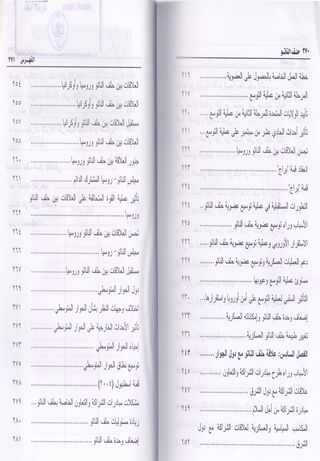 ٢٧٠ حلف الناتو
خطة العمل الخاصة بالحصول على العضوية ٢١٦
المرحلة الثانية من عملية التوسع ٢١٧
تأييد الولايات المتحدة للمرحلة الثانية من عملية التوسع ٢٢٠
تأثير أحداث الحادي عشر من سبتمبر على عملية التوسع ٢٢١
تحسن العلاقات بين حلف الناتو وروسيا ٢٢٢
انعقاد قمة "براج" ٢٢٣
قمة "براج"
التطورات المستقبلية في عملية توسيع عضوية حلف الناتو
الأسباب وراء توسيع عضوية حلف الناتو
الاستقرار الأوروبي وعملية توسيع عضوية حلف الناتو
دعم العمليات العسكرية وتوسيع عضوية حلف الناتو
مساوئ عملية التوسع وعيوبها
التأثير السلبي لعملية التوسع على أمن أوروبا واستقرارها
إضعاف وحدة حلف الناتو وإمكاناته العسكرية
تغيير طبيعة حلف الناتو العسكرية
الفصل السادس: علاقة حلف الناتو مع دول الجوار ٢٤٣
الأسباب وراء طرح مبادرات الشراكة والتعاون ٢٤٥
علاقات الشراكة مع دول الشرق ٢٤٧
مبادرة الشراكة من أجل السلام
المكاسب السياسية والعسكرية لعلاقات الشراكة مع دول
الشرق ٢٥٢
الفهرس ٢٧١
العلاقات بين حلف الناتو وروسيا وأوكرانيا ٢٥٤
العلاقات بين حلف الناتو وأوكرانيا ٢٥٥
مستقبل العلاقات بين حلف الناتو وأوكرانيا ٢٥٧
العلاقات بين حلف الناتو وروسيا ٢٥٨
تحسن العلاقات بين حلف الناتو وروسيا
جذور العلاقات بين حلف الناتو وروسيا ٢٦٠
مجلس الناتو - روسيا المشترك الدائم ٢٦١
تأثير عملية القوة المتحالفة على العلاقات بين حلف الناتو
وروسيا ٢٦٢
تحسن العلاقات بين حلف الناتو وروسيا
مجلس الناتو - روسيا ٢٦٦
مستقبل العلاقات بين حلف الناتو وروسيا ٢٦٧
دول الحوار المتوسطي ٢٦٩
اختلاف وجهات النظر بشأن الحوار المتوسطي
تأثير الأحداث الخارجية على الحوار المتوسطي ٢٧٢
إحياء الحوار المتوسطي ٢٧٣
توسيع نطاق الحوار المتوسطي ٢٧٥
قمة اسطنبول (٢٠٠٤) ٢٧٨
مشكلات مبادرات الشراكة والتعاون الخاصة بحلف الناتو ٢٧٩
زيادة مسئوليات حلف الناتو
إضعاف وحدة حلف الناتو ٢٨١